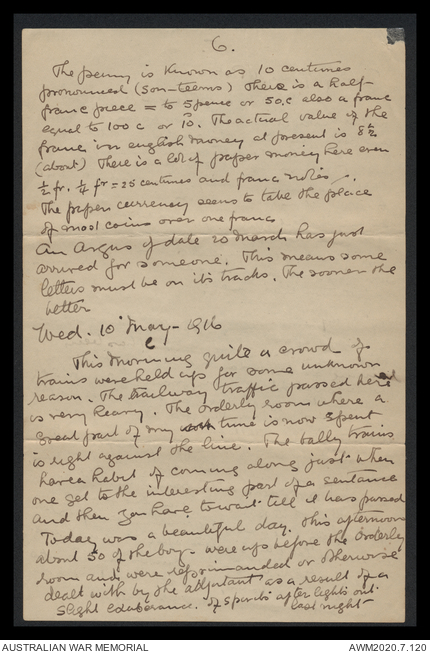 6.
The penny is known as 10 centimes
pronounced (son-teems) There is a half-
franc piece = to 5 pence or 50.c also a franc
equal to 100 c or 10. The actual value of the
franc in english money at present is
(about) There is a lot of paper money here even
½ fr. ¼ fr = 25 centimes and franc notes.
The paper currency seems to take the place
of most coins over one franc
An Argus of date 20 March has just
arrived for someone. This means some
letters must be on its tracks. The sooner the
better
Wed. 10 May - 1916
This morning quite a crowd of
trains were held up for some unknown
reason. The railway traffic passed here
is very heavy. The orderly room where a
great part of my time is now spent
is right against the line. The bally trains
have a habit of coming along just when
one get to the interesting part of a sentance
and then you have to wait till it has passed
Today was a beautiful day. This afternoon
about 50 of the boys were up before the Orderly
room and were reprimanded or otherwise
dealt with by the adjutant as a result of a
slight exuberance of spirits after lights out
last night
AUSTRALIAN WAR MEMORIAL
AWM2020.7.120